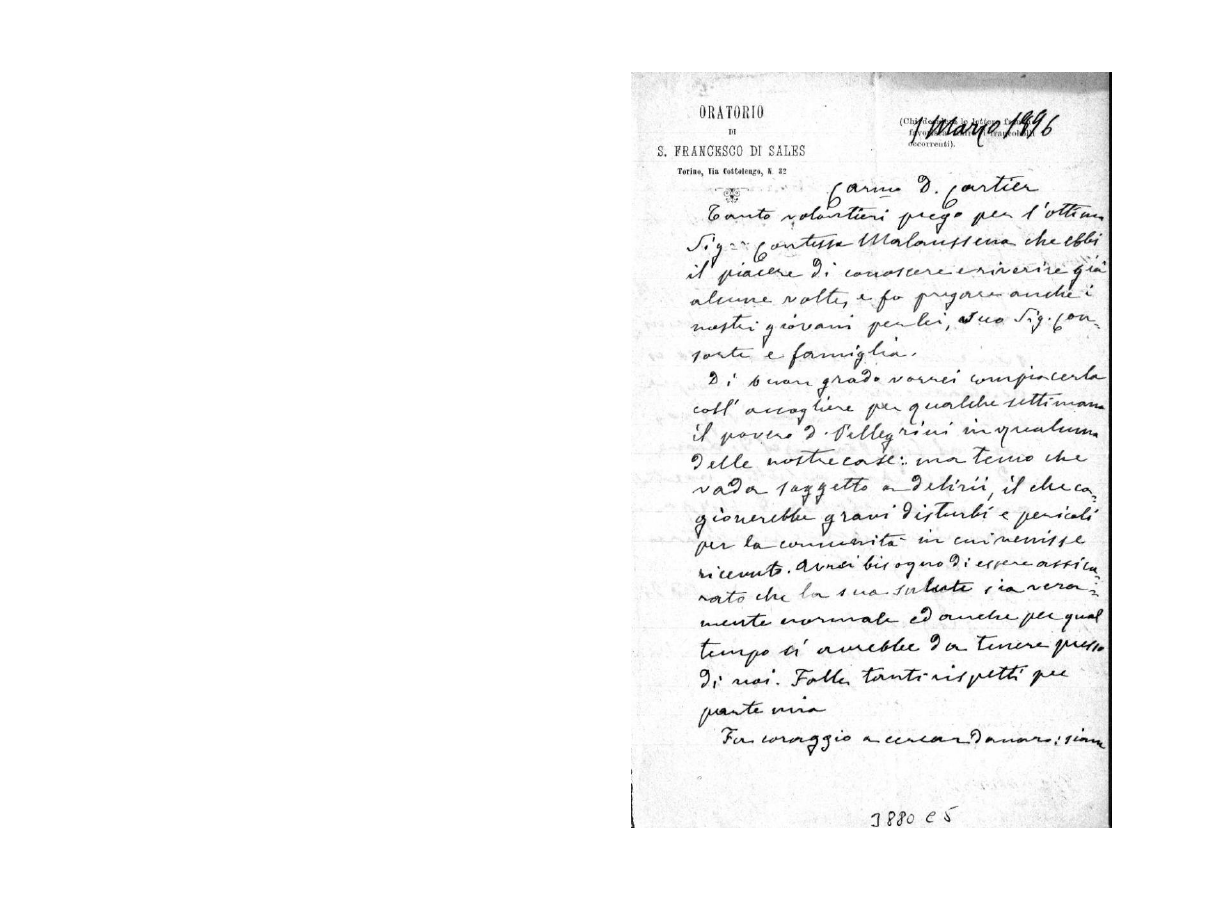 ORATORIO
DI
S. FRANCESCO DI SALES
Torino, Via Cottolengo, N. 32
(Chi
occorrenti).
1 Marzo 1896
Carmo D. Cartier
Tanto volontieri prego per l'ottima
Sig.ra Contessa Malaussena che ebbi
il piacere di conoscere e riverire già
alcune volte, e fo pregare anche i
nostri giovani per lei, suo Sig. Con-
sorte e famiglia.
Di buon grado vorrei compiacerla
coll' accogliere per qualche settimana
il povero D. Pellegrini in qualcuna
delle nostre case: ma temo che
vada soggetto a delirii, il che ca-
gionerebbe gravi disturbi e pericoli
per la comunità in cui venisse
ricevuto. Avrei bisogno di essere assicu-
rato che la sua salute sia vera-
mente normale ed anche per qual
tempo si avrebbe da tenere presso
di noi. Falle tanti rispetti per
parte mia
Fa coraggio a cercar danaro; siam
3880 C 5